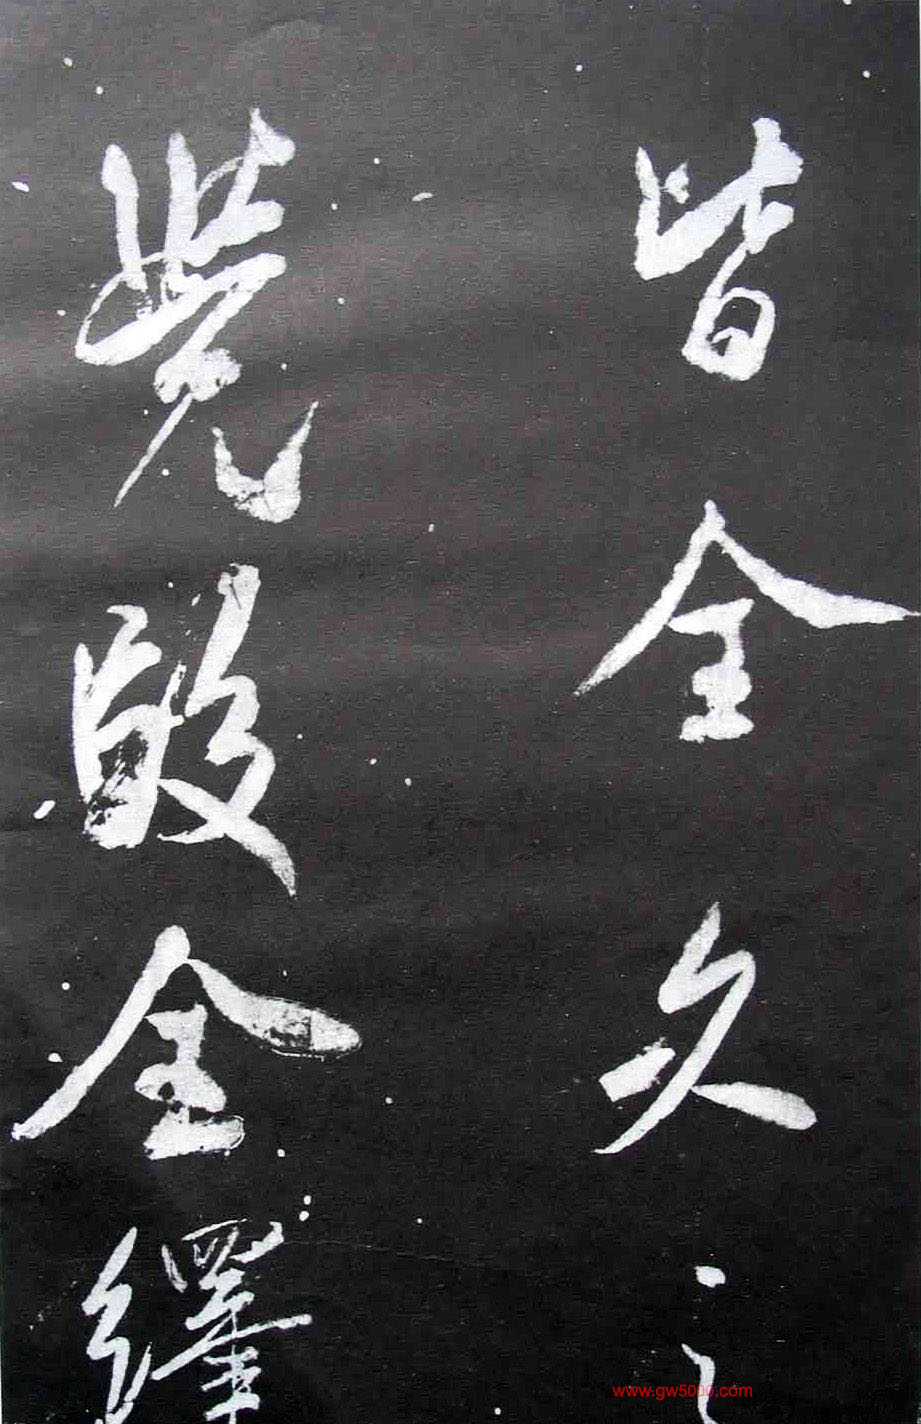 皆全久之
全繹
www.gw5000.com